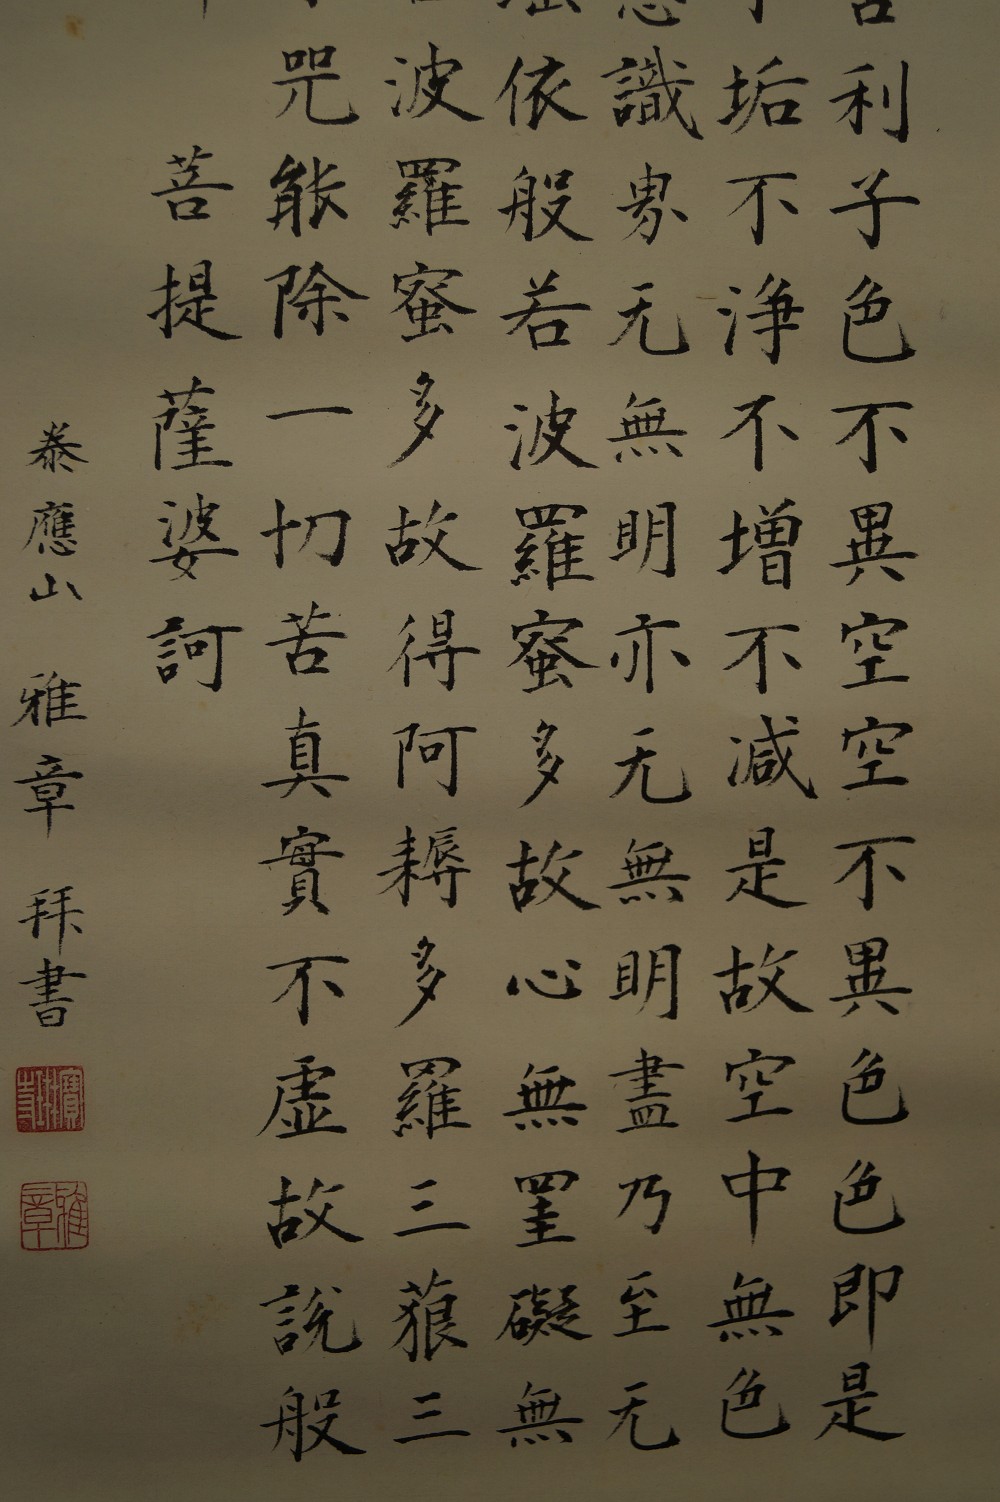 利子色不異空空不異色色即是
垢不浄不増不減是故空中無色
識界无無明亦无無明盡乃至无
依般若波羅蜜多故心無罣礙無
波羅蜜多故得阿耨多羅三藐三
咒能除一切苦真實不虛故説般
菩提薩婆訶
泰應山 雅章 拜書
雅章